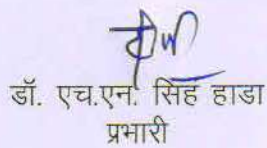 डॉ. एच.एन. सिंह हाडा
प्रभारी